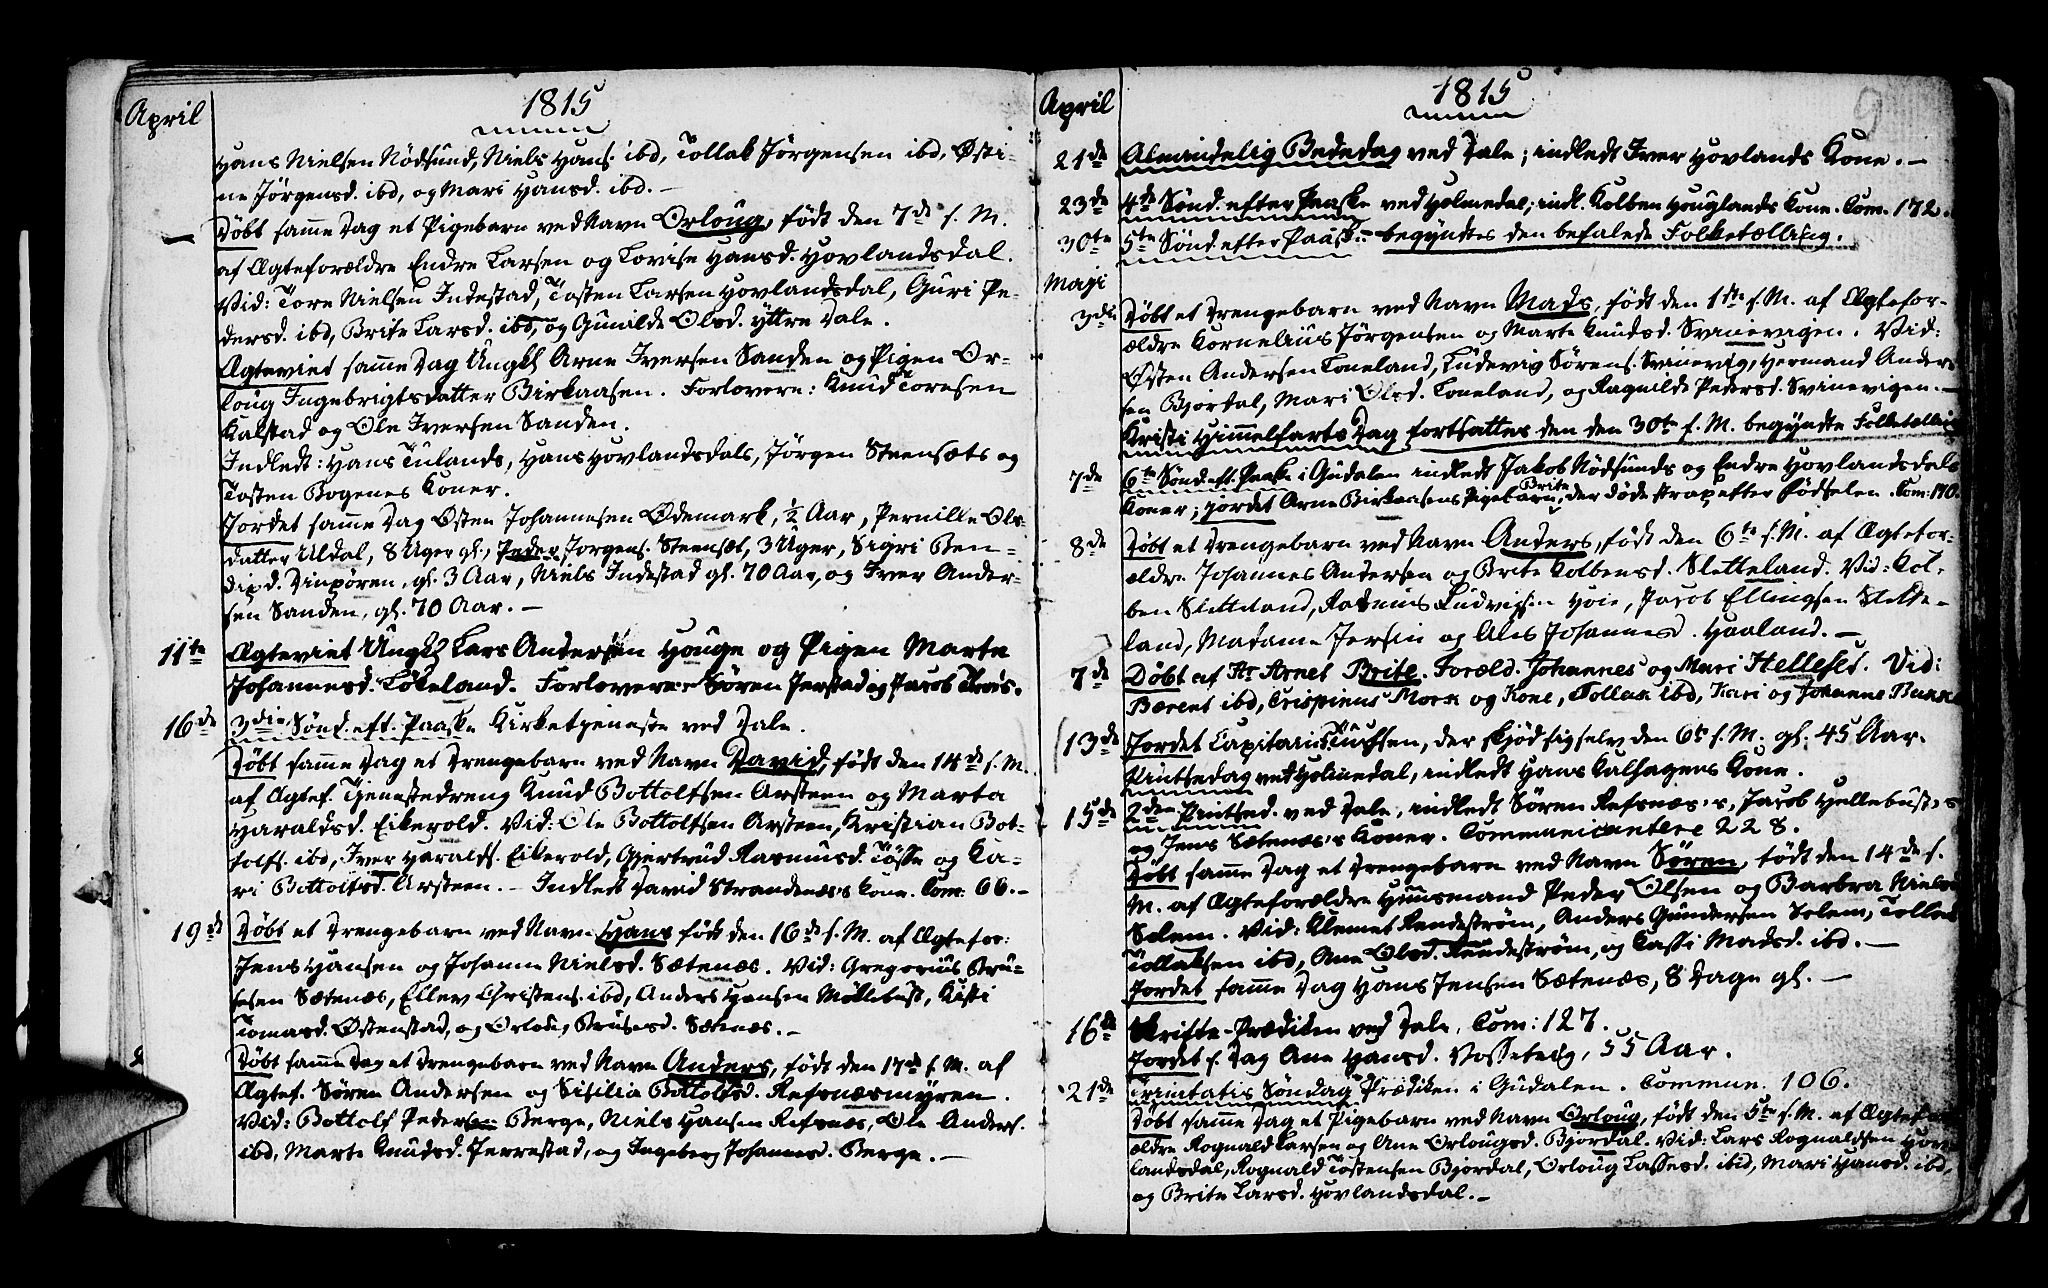 April
1815
Hans Nielsen Nödsund, Niels Hans. ibd, Tollak Jörgensen ibd, Østi-
ne Jörgensd. ibd, og Mari Hansd. ibd. —
— Döbt samme Dag et Pigebarn ved Navn Orloug, födt den 7de s. M.
af Ægteforældre Endre Larsen og Lovise Hansd. Hovlandsdal.
Vid: Tore Nielsen Indestad, Tosten Larsen Hovlandsdal, Guri Pe-
dersd. ibd, Brite Larsd. ibd, og Gunilde Olsd. yttre Dale.
Ægteviet samme Dag Ungk. Arne Iversen Sanden og Pigen Or-
loug Ingebrigtsdatter Birkaasen. Forlovere: Knud Toresen
Kalstad og Ole Iversen Sanden.
Indledt: Hans Tulands, Hans Hovlandsdals, Jörgen Steensæts og
Tosten Bogenes Koner.
Jordet samme Dag Østen Johannesen Ødemark, ½ Aar, Pernille Ols-
datter Uldal, 8 Uger gl., Peder Jorgens. Steensæt, 3 Uger, Sigri Ben-
dixd. gl. 3 Aar, Niels Indestad gl. 70 Aar, og Iver Ander-
sen Sanden, gl. 70 Aar. —
11te Ægteviet Ungk. Lars Andersen Houge og Pigen Marte
Johannesd. Lökeland. Forlovere: Sören Jerstad og Jacob
16de 3die Sönd. eft. Paaske Kirketjeneste ved Dale.
Döbt samme Dag et Drengebarn ved Navn David, födt den 14de s. M.
af Ægtef. Tjenestedreng Knud Bottolfsen Arsteen og Marta
Haraldsd. Eikerold. Vid: Ole Bottolfsen Arsteen, Kristian Bot-
tolfs. ibd, Iver Haralds. Eikerold, Gjertrud Rasmusd. Tösse og Ka-
ri Bottolfsd. Arsteen. — Indledt David Strandenæs's Kone. Com. 66. —
19de Döbt et Drengebarn ved Navn Hans födt den 16de s. M. af Ægtefor:
Jens Hansen og Johanne Nielsd. Sætenæs. Vid: Gregorius Bru-
sesen Sætenæs, Ellev Christens. ibd, Anders Hansen Möllebust, Kisti
Tomasd. Østenstad, og Orlou, Brusesd. Sætenæs. —
Döbt samme Dag et Drengebarn ved Navn Anders, födt den 17de s. M. af
Ægtef. Sören Andersen og Sisilia Bottolfsd. Refsnæsmyren.
Vid: Bottolf Pedersen Berge, Niels Hansen Refsnæs, Ole Anders.
ibd, Marte Knudsd. Jerrestad, og Ingeborg Johannesd. Berge. —
April
1815
9
21de Almindelig Bededag ved Dale; indledt Iver Hovlands Kone. —
23de 4de Sönd. efter Paaske ved Holmedal; indl. Kolben Houglands Kone. Com. 172.
30te 5te Sönd. efter Paask: begyndtes den befalede Folketælling.
Maji
3de Döbt et Drengebarn ved Navn Mads, födt den 1ste s. M. af Ægtefor-
ældre Kornelius Jörgensen og Marte Knudsd. Svinevigen. Vid:
Østen Andersen Loneland, Ludevig Sörens. Svinevig, Hermand Ander-
sen Bjordal, Mari Olsd. Loneland, og Ragnilde Pedersd. Svinevigen. —
Kristi Himmelfarts Dag fortsattes den den 30te f. M. begyndte Folketælling
7de 6te Sönd. eft. Paaske i Gudalen indledt Jakob Nödsunds og Endre Hovlandsdals
Koner; jordet Arne Birkaasens Pigebarn Brite, der döde strax efter Födselen. Com: 170.
8de Döbt et Drengebarn ved Navn Anders, födt den 6te s. M. af Ægtefor-
ældre Johannes Andersen og Brite Kolbensd. Sletteland. Vid: Kol-
ben Sletteland, Rasmus Ludvigsen Høie, Jacob Ellingsen Slette-
land, Madame Jersin og Ales Johannesd. Haaland. —
7de Döbt af Hr Arnet Brite. Foræld. Johannes og Mari Hellesed. Vid:
Bærent ibd, Crispinus Mork og Kone, Tollak ibd, Kari og Johanne
13de Jordet Capitain Tuchsen, der skjöd sig selv den 6te s. M. gl. 45 Aar.
Pintsedag ved Holmedal, indledt Hans Kalhagens Kone.
15de 2den Pintsed. ved Dale, indledt Sören Refsnæs's, Jacob Hellebust's
og Jens Sætenæs's Koner. Communicantere 228.
Döbt samme Dag et Drengebarn ved Navn Sören, födt den 14de s.
M. af Ægteforældre Huusmand Peder Olsen og Barbra Nielsd.
Solem. Vid: Klemet Rendeström, Anders Gundersen Solem, Tollak
Tollaksen ibd, Ane Olsd. Rendeström, og Kassi Madsd. ibd. —
Jordet samme Dag Hans Jensen Sætenæs, 8 Dage gl. —
16de Skrifte-Prædiken ved Dale. Com: 127.
Jordet s. Dag Ane Hansd. Vosseteig, 55 Aar.
21de Trinitatis Söndag Prædiken i Gudalen. Commun. 106.
Döbt samme Dag et Pigebarn ved Navn Orloug, födt den 5te s. M. af Ægtefor-
ældre Rognald Larsen og Ane Orlougsd. Bjordal. Vid: Lars Rognaldsen Hov-
landsdal, Rognald Tostensen Bjordal, Orloug Lassesd. ibid, Mari Hansd. ibd,
og Brite Larsd. Hovlandsdal. —